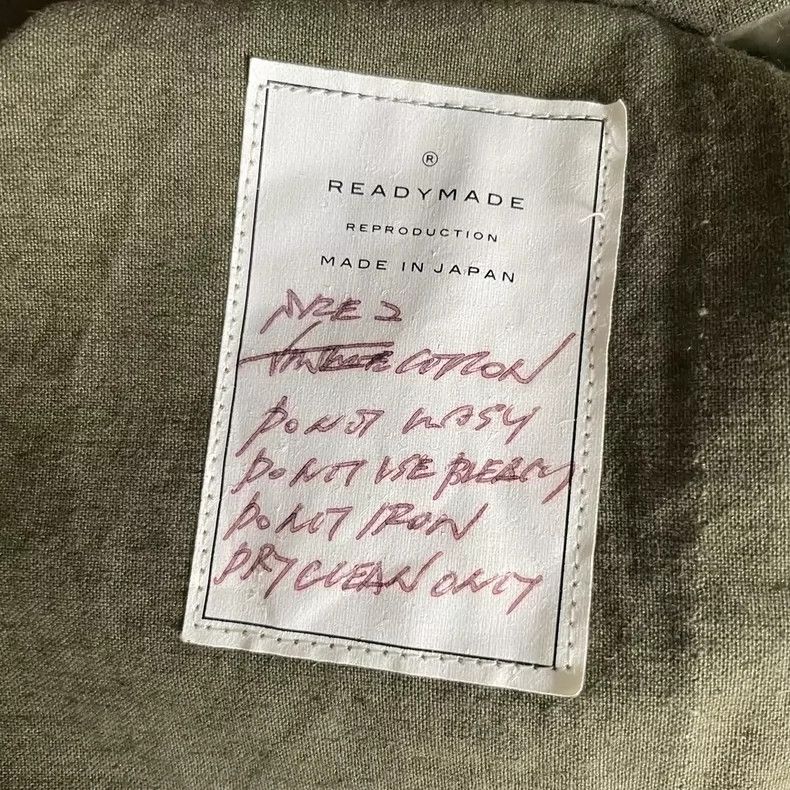 ®
READYMADE
REPRODUCTION
MADE IN JAPAN
SIZE 2
COTTON
DO NOT WASH
DO NOT USE BLEACH
DO NOT IRON
DRY CLEAN ONLY